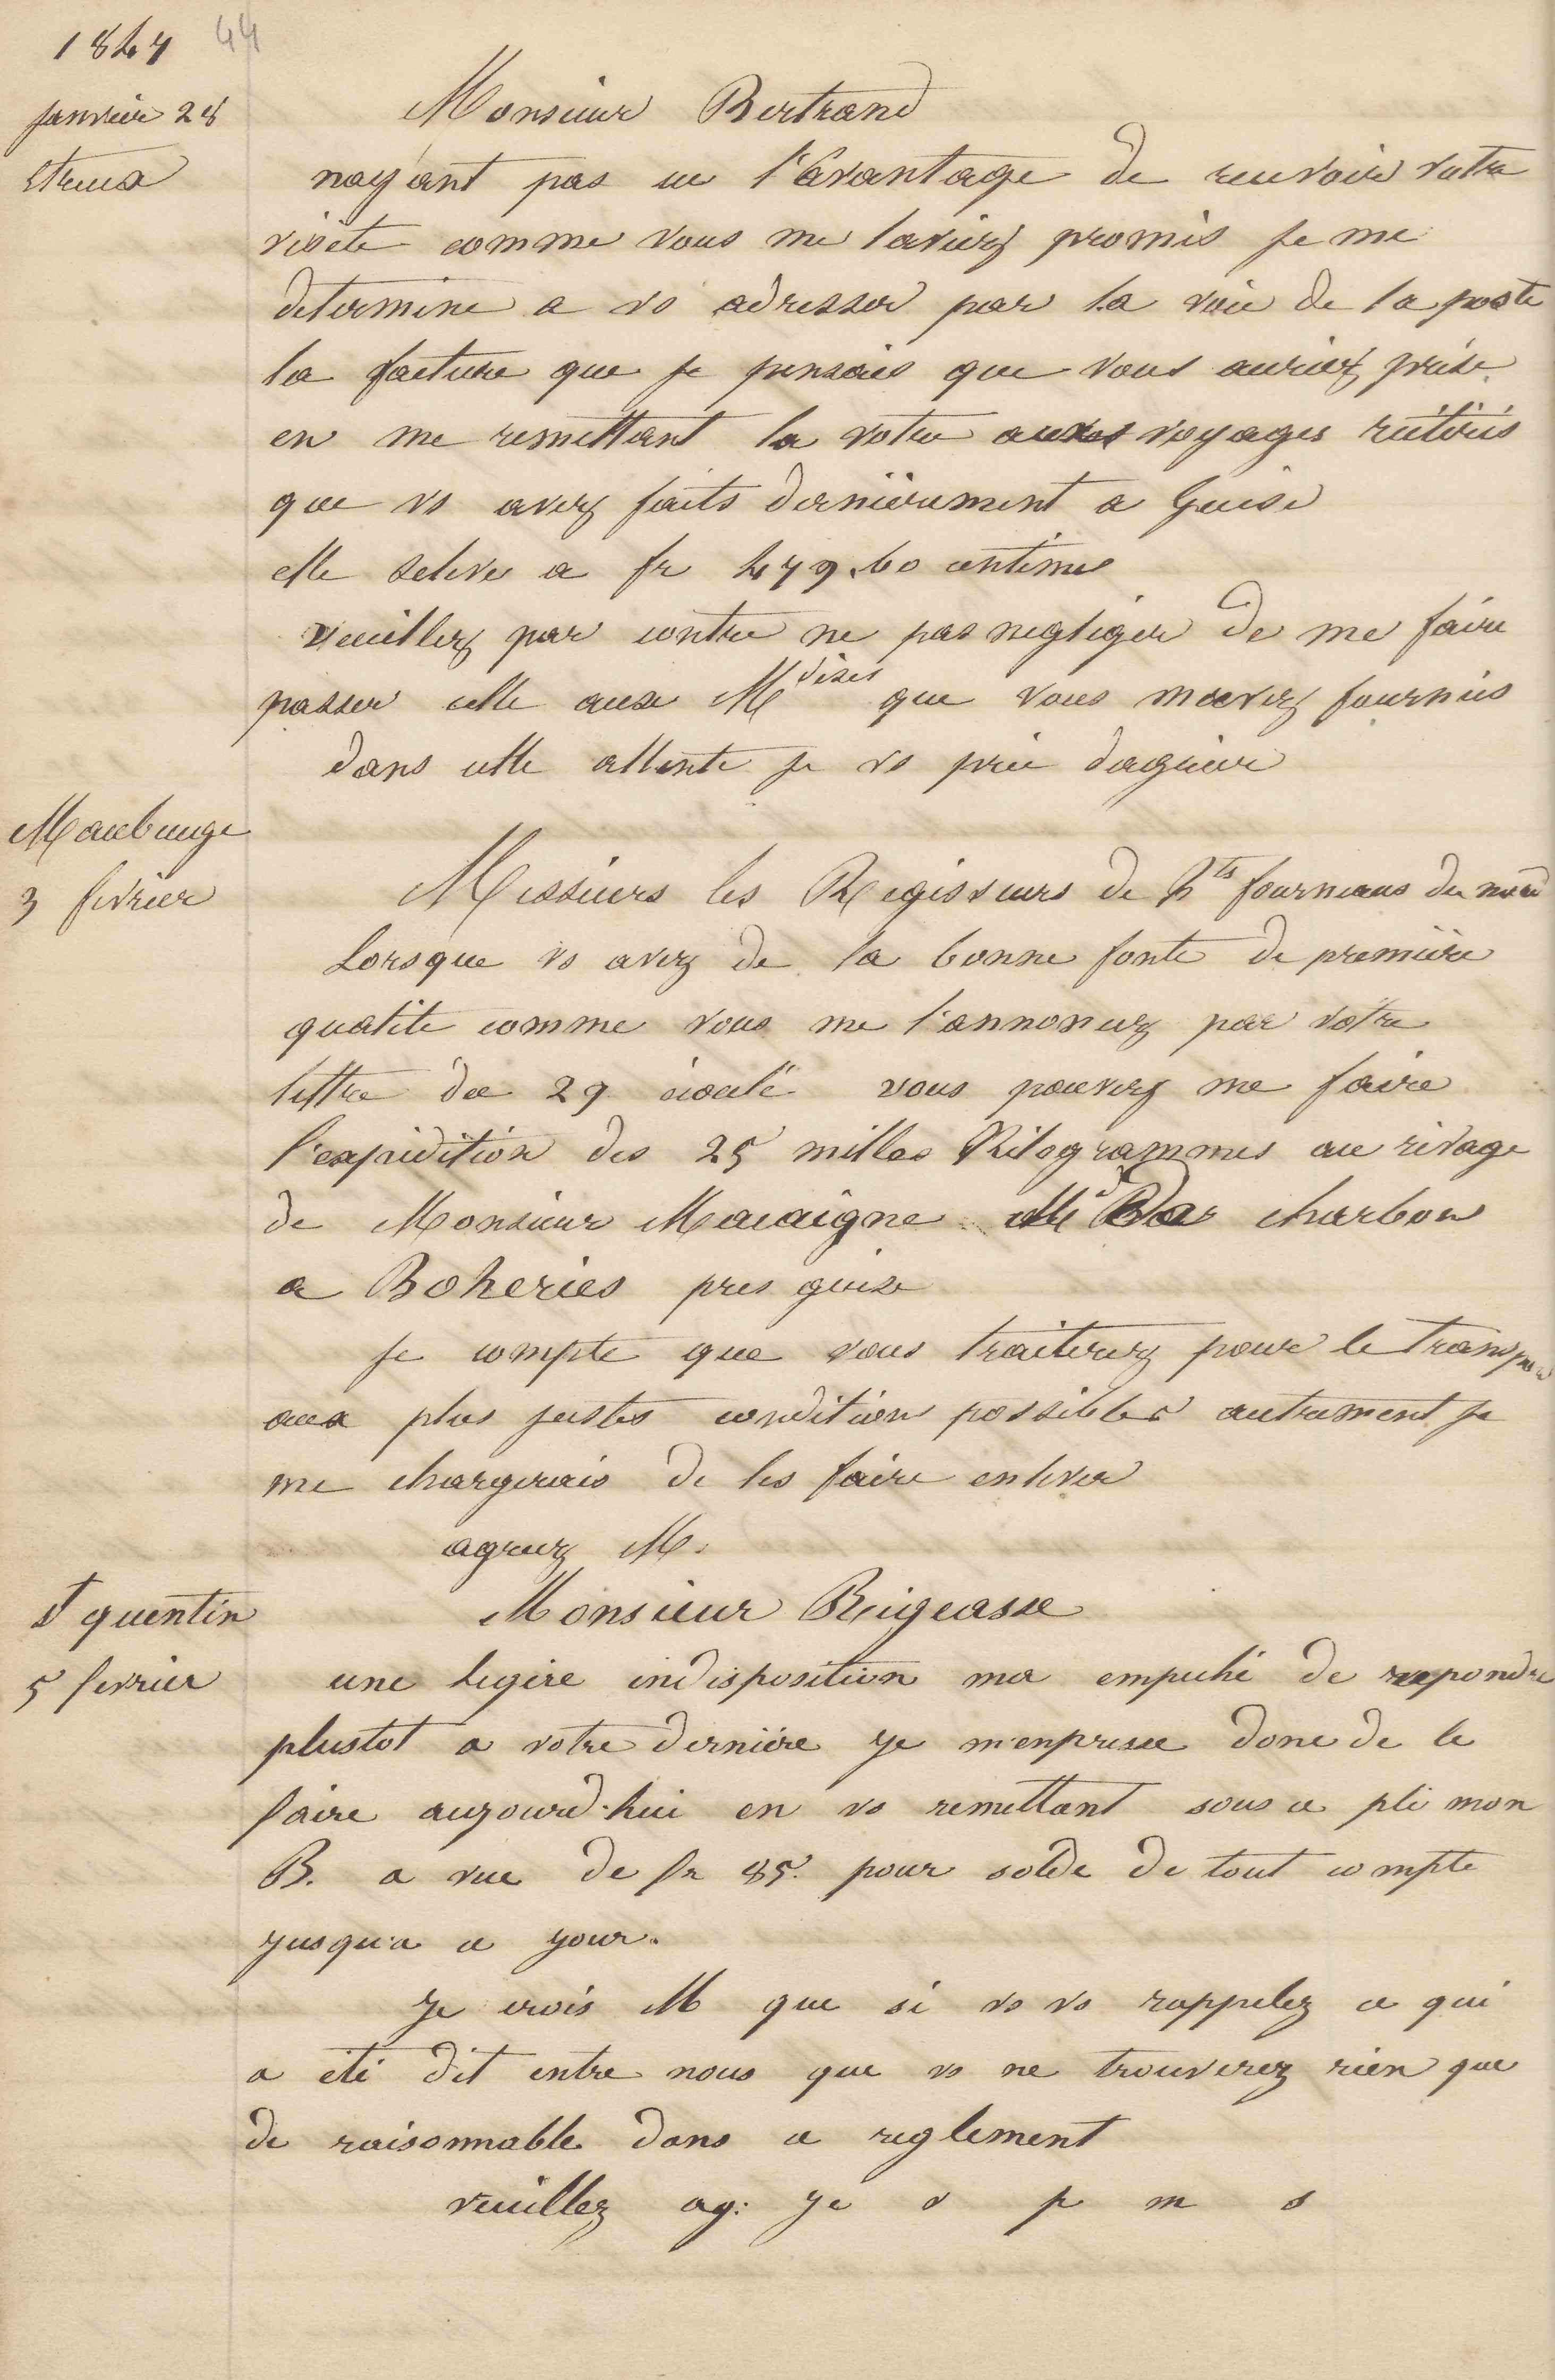 1847 44
Janvier 28
Etreux
Monsieur Bertrand
nayant pas eu l'avantage de recevoir votre
visite comme vous me laviez promis je me
determine a vs adresser par la voie de la poste
la facture que je pensais que vous auriez prise
en me remettant la votre aux voyages réitérés
que vs avez faits dernièrement a Guise
elle selève a fr 479.60 centimes
veuillez par contre ne pas negliger de me faire
passer celle aux Mdises que vous mavez fournies
dans cette attente je vs prie dagréer
Maubeuge
3 fevrier
Messieurs les Regisseurs de hts fourneaux du nord
Lorsque vs avez de la bonne fonte de première
qualité comme vous me l'annoncez par votre
lettre du 29 écoulé vous pouvez me faire
l'expédition des 25 milles Kilogrammes au rivage
de Monsieur Macaigne Md de charbon
a Boheries pres guise
je compte que vous traiterez pour le transpor
aux plus justes condition possibles autrement je
me chargerais de les faire enlever
agreez M.
St quentin
5 fevrier
Monsieur Bigeasse
une legère indisposition ma empeché de repondre
plustot a votre dernière je m'enpresse donc de le
faire aujourd'hui en vs remettant sous ce pli mon
B. a vue de fr 85. pour solde de tout compte
jusqu'a ce jour.
Je crois M que si vs vs rappelez ce qui
a été dit entre nous que vs ne trouverez rien que
de raisonnable dans ce reglement
veuillez ag: je v p m s